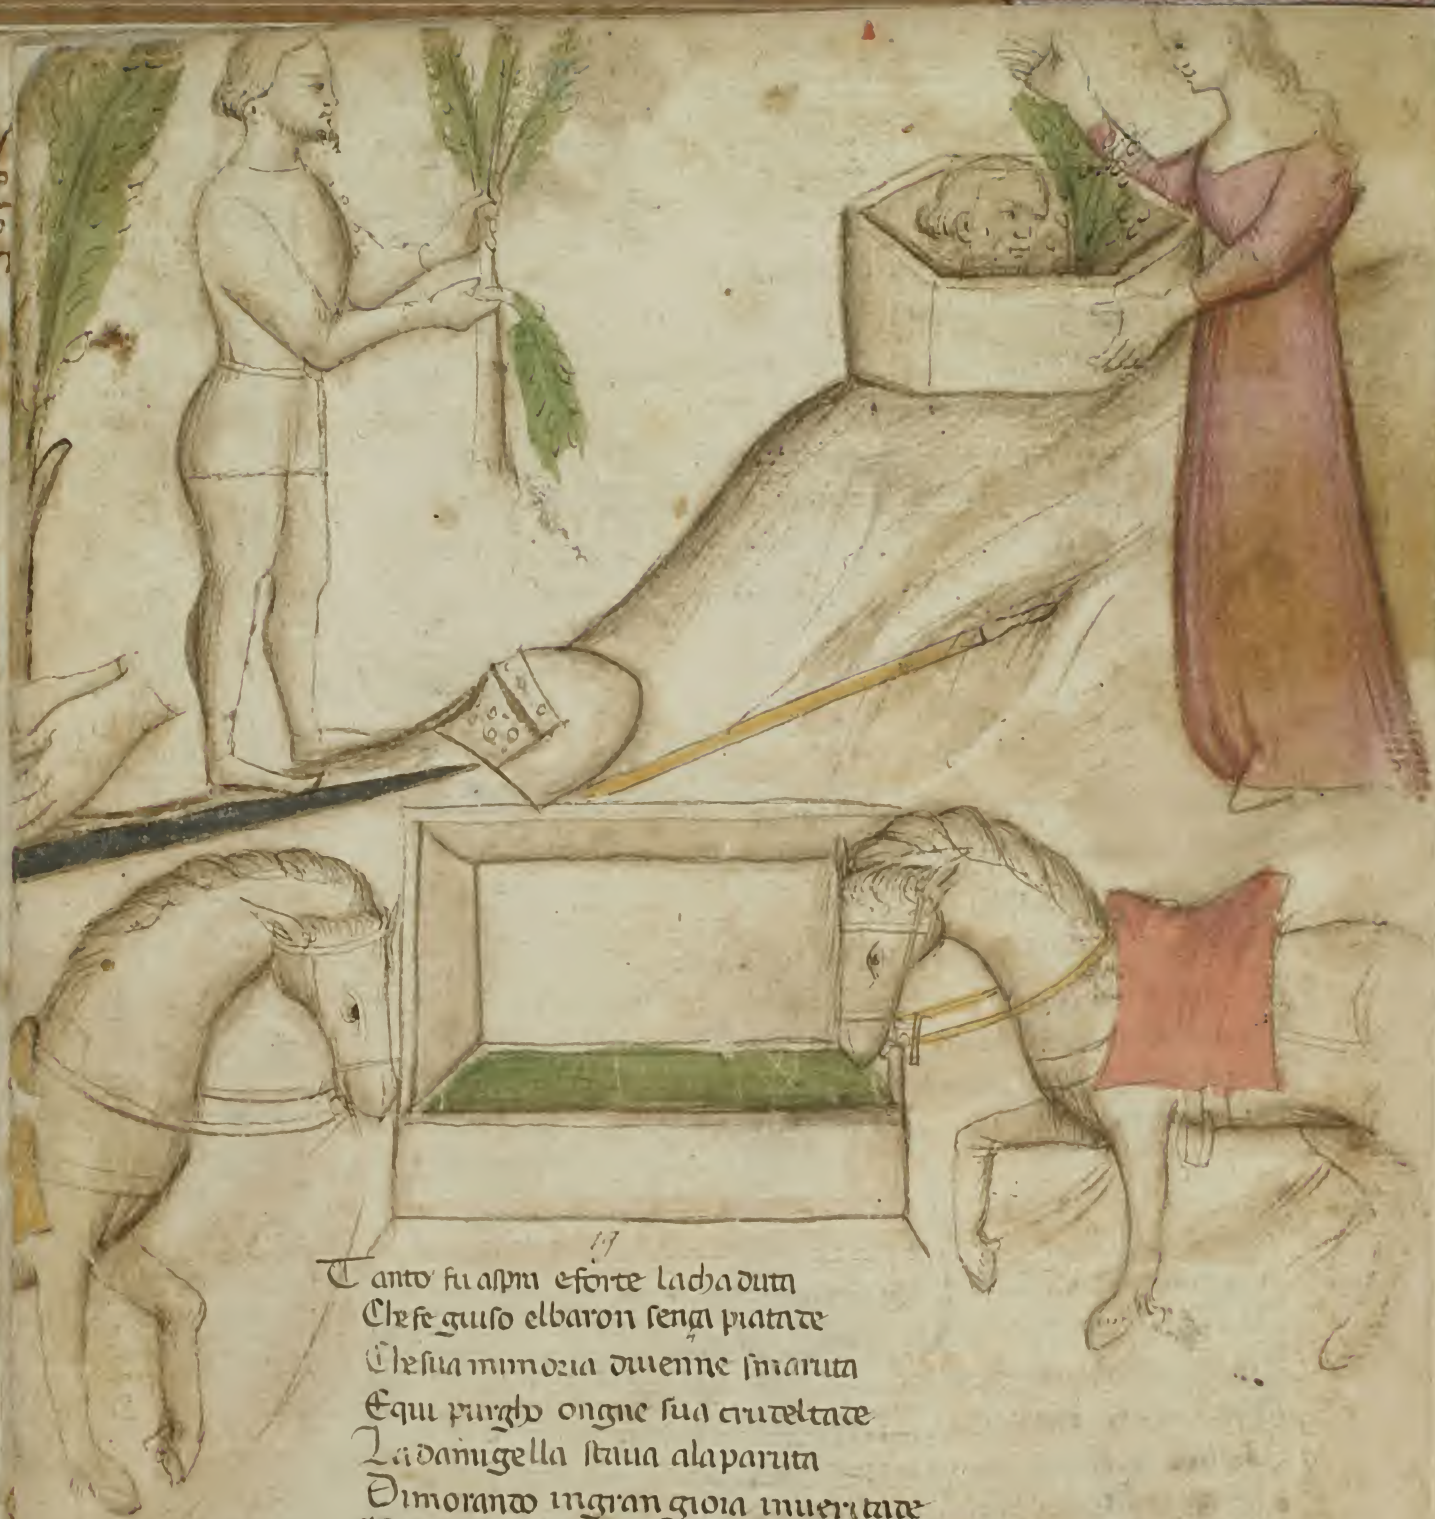 19
Tanto fu aspra e forte la chaduta
Che fe giuso el baron senza piatate
Che sua mimoria divenne smaruta
E qui purgho ongne sua crudeltate
La damigella stava ala paruta
Dimorando in gran gioia in veritate